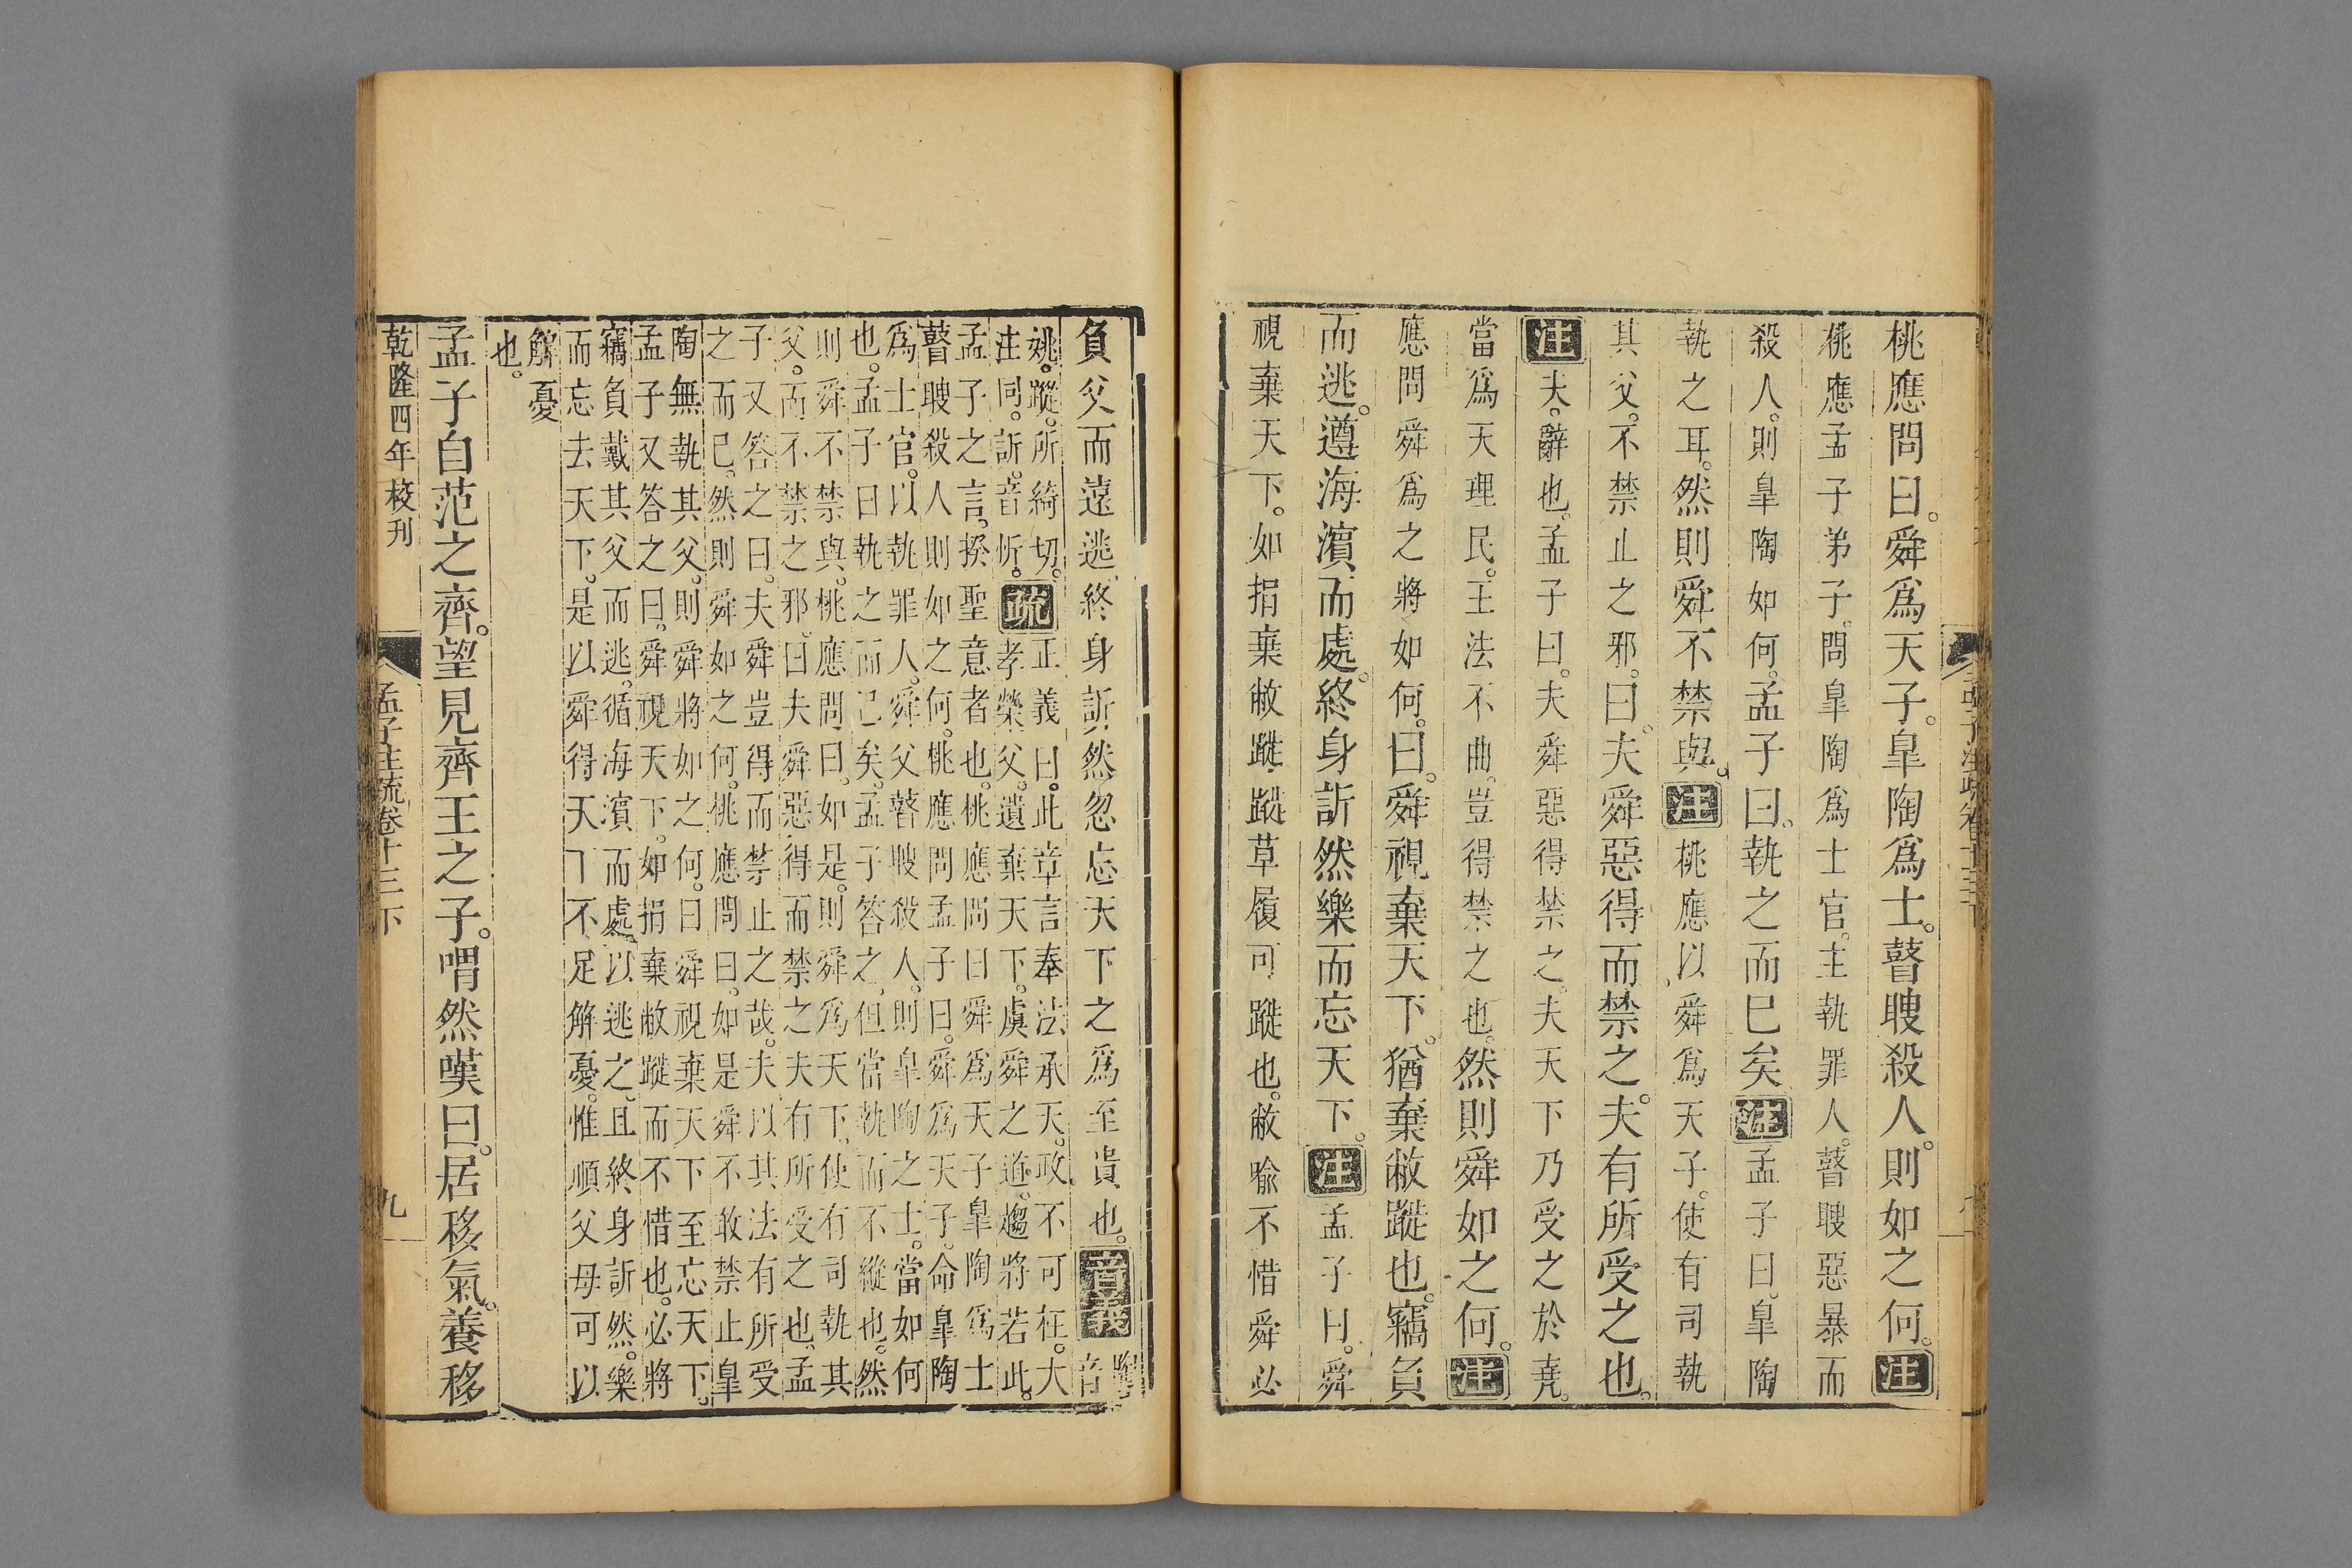 桃應問曰。舜爲天子。皐陶爲士。瞽瞍殺人。則如之何。注
桃應孟子弟子。問皐陶爲士官。主執罪人。瞽瞍惡暴而
殺人。則皐陶如何。孟子曰。執之而巳矣注孟子曰。皐陶
執之耳。然則舜不禁與。注桃應以舜爲天子。使有司執
其父。不禁止之邪。曰。夫舜惡得而禁之。夫有所受之也。
注夫。辭也。孟子曰。夫舜惡得禁之。夫天下乃受之於堯。
當爲天理民。王法不曲。豈得禁之也。然則舜如之何。注
應問舜爲之將如何。曰。舜視棄天下。猶棄敝蹝也。竊負
而逃。遵海濱而處。終身訢然樂而忘天下。注孟子曰。舜
視棄天下。如捐棄敝蹝。蹝草履可蹝也。敝喻不惜舜必
負父而遠逃。終身訢然忽忘天下之爲至貴也。音義陶音
姚。蹝。所綺切。
注同。訢。音忻。疏正義曰。此章言奉法承天。政不可枉。大
孝榮父。遺棄天下。虞舜之道。趨將若此。
孟子之言。揆聖意者也。桃應問曰舜爲天子皐陶爲士
瞽瞍殺人則如之何。桃應問孟子曰。舜爲天子。命皐陶
爲士官。以執罪人。舜父瞽瞍殺人。則皐陶之士。當如何
也。孟子曰執之而已矣。孟子答之。但當執而不縱也。然
則舜不禁與。桃應問曰。如是。則舜爲天下。使有司執其
父。而不禁之邪。曰夫舜惡得而禁之夫有所受之也。孟
子又答之曰。夫舜豈得而禁止之哉。夫以其法有所受
之而已。然則舜如之何。桃應問曰。如是舜不敢禁止皐
陶無執其父。則舜將如之何。曰舜視棄天下至忘天下。
孟子又答之曰。舜視天下。如捐棄敝蹝而不惜也。必將
竊負戴其父而逃。循海濱而處以逃之。且終身訢然。樂
而忘去天下。是以舜得天下不足解憂。惟順父母可以
解憂
也。
孟子自范之齊。望見齊王之子。喟然嘆曰。居移氣。養移
乾隆四年校刊
孟子注疏卷十三下
九